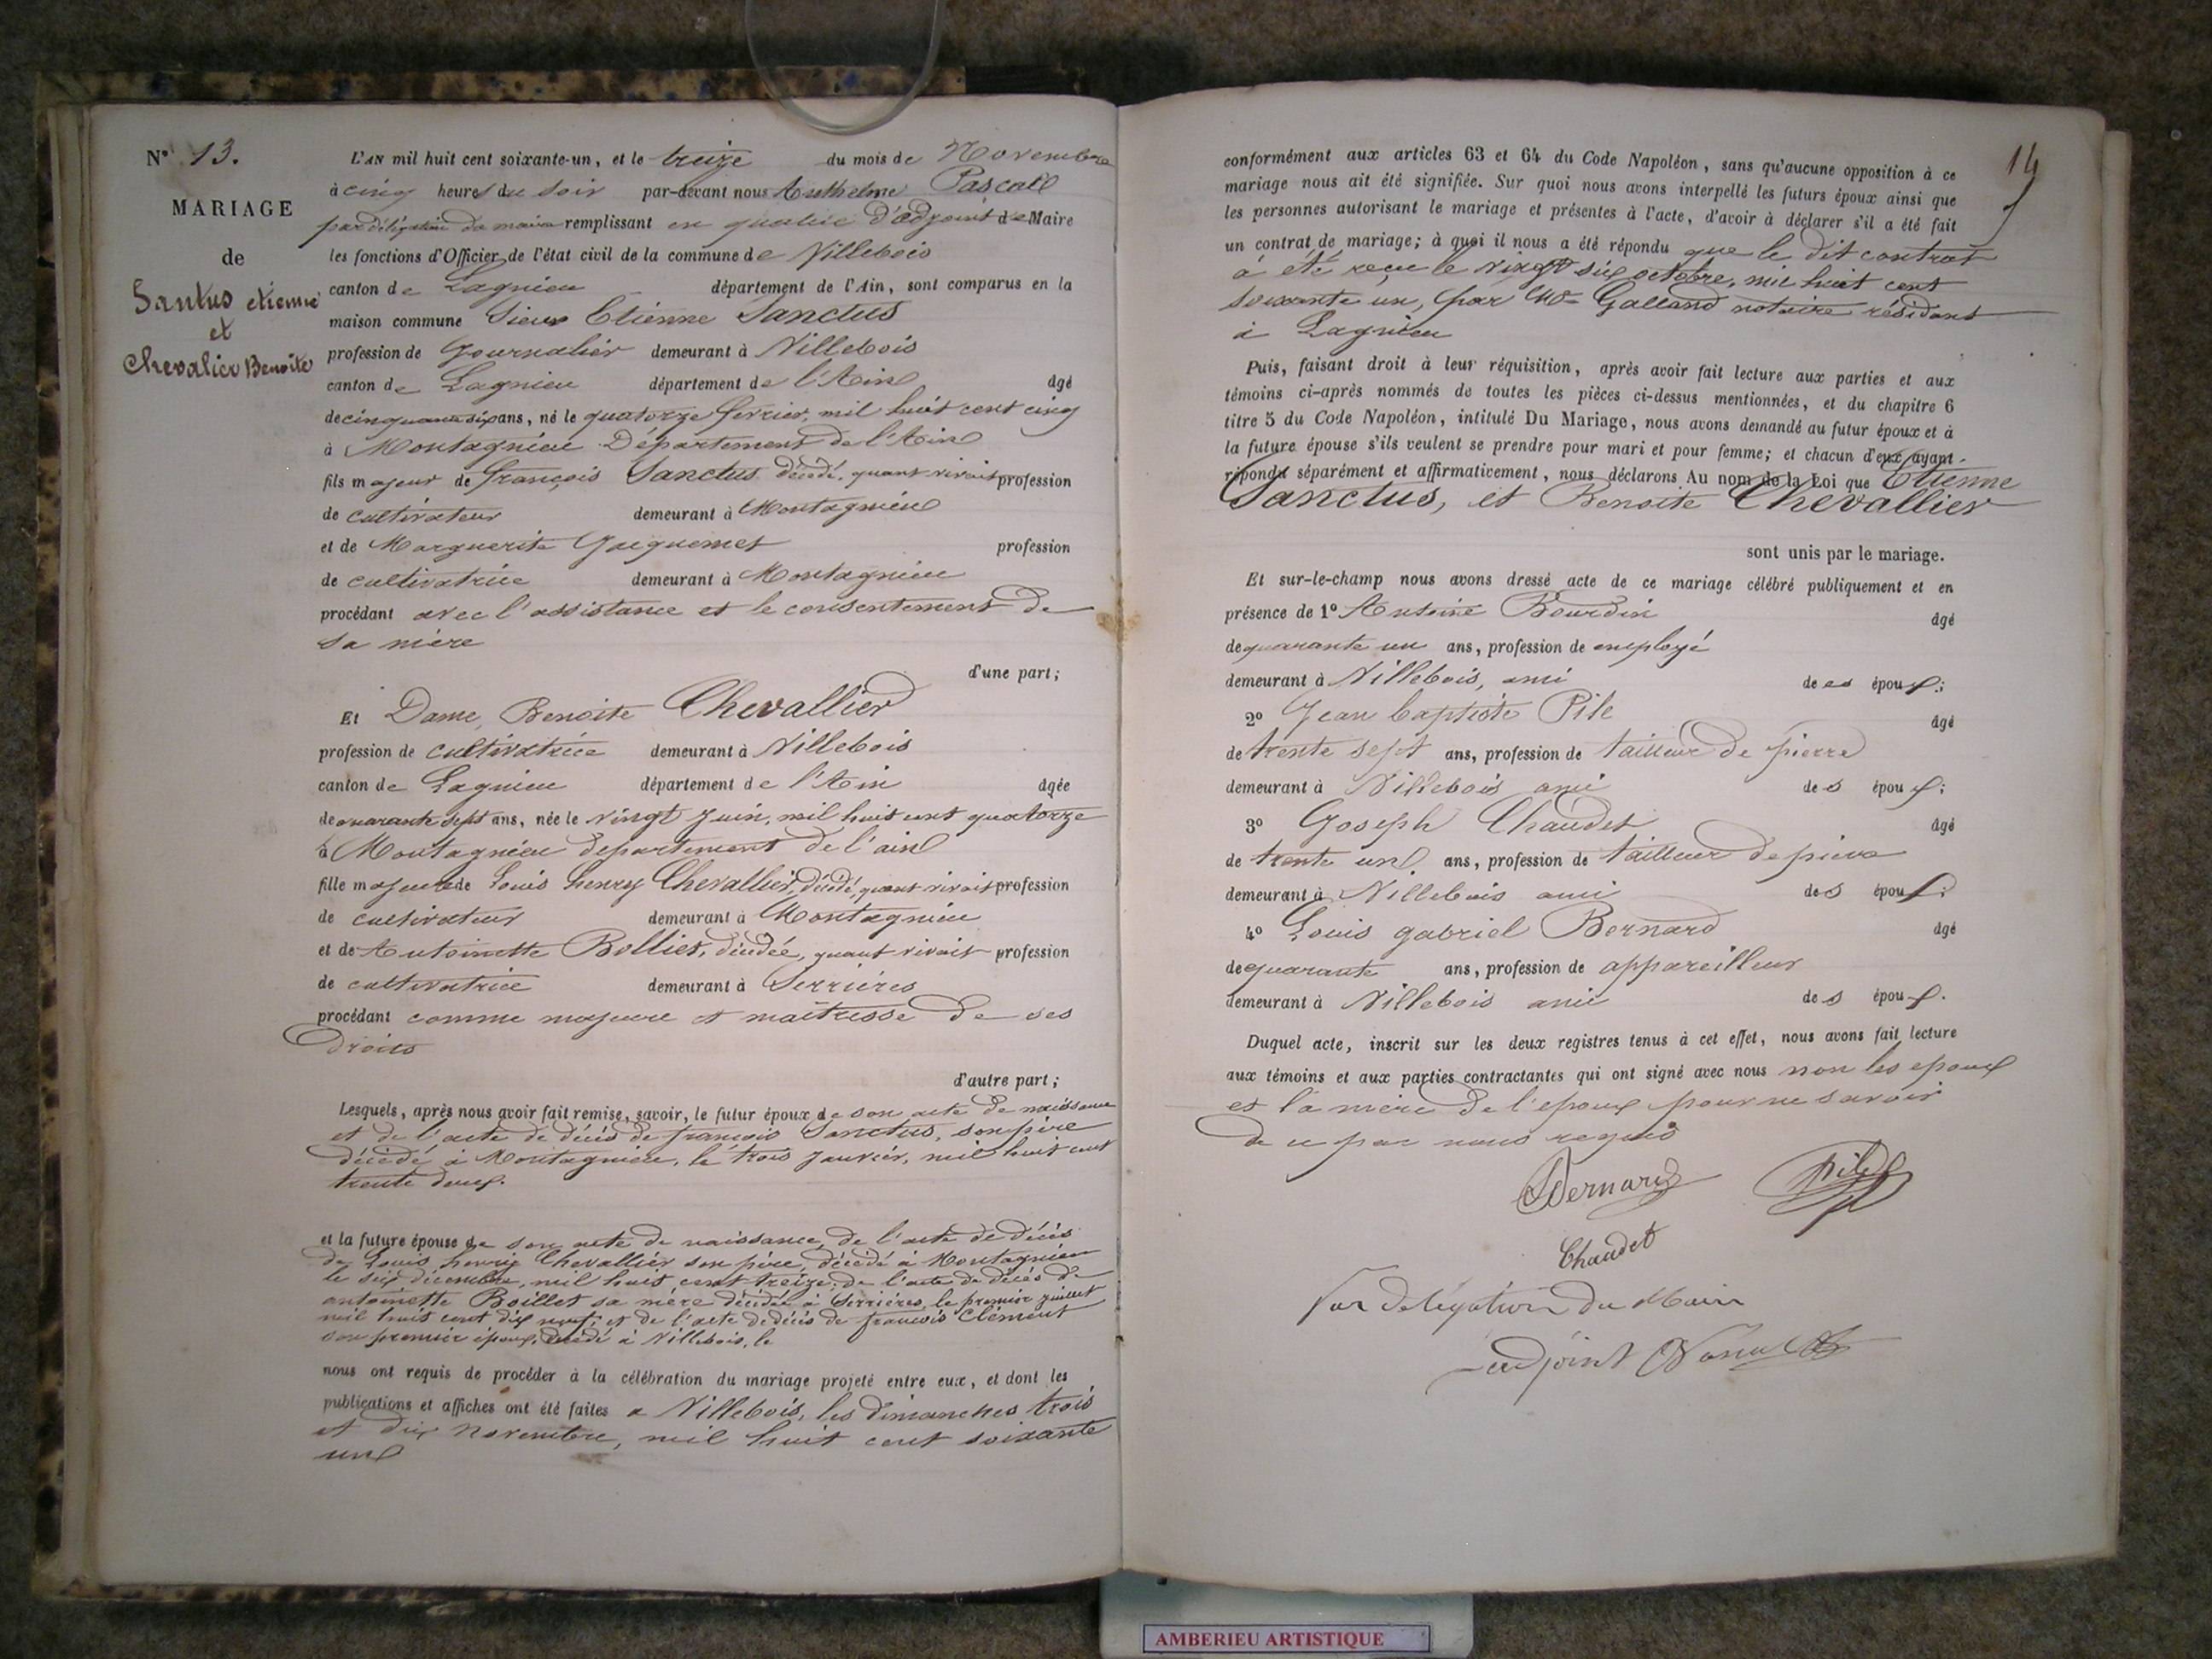 N° 13.
MARIAGE
de
Santus etienne
et
Chevalier Benoite
L'AN mil huit cent soixante-un, et le treize du mois de Novembre
à cinq heures du soir par-devant nous Anthelme Pascall
par délégation du maire remplissant en qualité d'adjoint de Maire
les fonctions d'Officier de l'état civil de la commune de Villebois
canton de Lagnieu département de l'Ain, sont comparus en la
maison commune Sieur Etienne Sanctus
profession de Journalier demeurant à Villebois
canton de Lagnieu département de l'Ain âgé
de cinquante six ans, né le quatorze fevrier, mil huit cent cinq
à Montagnieu Département de l'Ain
fils majeur de François Sanctus décédé, quant vivait profession
de cultivateur demeurant à Montagnieu
et de Marguerite Jacquemet profession
de cultivatrice demeurant à Montagnieu
procédant avec l'assistance et le consentement de
sa mère
d'une part;
Et Dame, Benoite Chevallier
profession de cultivatrice demeurant à Villebois
canton de Lagnieu département de l'Ain âgée
de quarante sept ans, née le vingt Juin, mil huit cent quatorze
à Montagnieu departement de l'ain
fille majeure de Louis henry Chevallier, décédé, quant vivait profession
de cultivateur demeurant à Montagnieu
et de Antoinette Bolliet, décédée, quant vivait profession
de cultivatrice demeurant à Serrières
procédant comme majeure et maîtresse de ses
droits
d'autre part;
Lesquels, après nous avoir fait remise, savoir, le futur époux de son acte de naissance
et de l'acte de décès de françois Sanctus, son père
décédé à Montagnieu, le trois Janvier, mil huit cent
trente deux.
et la future épouse de son acte de naissance, de l'acte de décès
de Louis henry Chevallier son père, décédé à Montagnieu
le six décembre, mil huit cent treize, de l'acte de décès de
antoinette Boillet sa mère décédée à Serrières, le premier juillet
mil huit cent dix neuf; et de l'acte de décès de françois Clément
son premier époux, décédé à Villebois, le
nous ont requis de procéder à la célébration du mariage projeté entre eux, et dont les
publications et affiches ont été faites a Villebois, les dimanches trois
et dix novembre, mil huit cent soixante
un
14
conformément aux articles 63 et 64 du Code Napoléon, sans qu'aucune opposition à ce
mariage nous ait été signifiée. Sur quoi nous avons interpellé les futurs époux ainsi que
les personnes autorisant le mariage et présentes à l'acte, d'avoir à déclarer s'il a été fait
un contrat de mariage; à quoi il nous a été répondu que le dit contrat
à été reçu le vingt six octobre, mil huit cent
soixante un, par Me Galland notaire résidant
à Lagnieu
Puis, faisant droit à leur réquisition, après avoir fait lecture aux parties et aux
témoins ci-après nommés de toutes les pièces ci-dessus mentionnées, et du chapitre 6
titre 5 du Code Napoléon, intitulé Du Mariage, nous avons demandé au futur époux et à
la future épouse s'ils veulent se prendre pour mari et pour femme; et chacun d'eux ayant
répondu séparément et affirmativement, nous déclarons Au nom de la Loi que Etienne
Sanctus, et Benoite Chevallier
sont unis par le mariage.
Et sur-le-champ nous avons dressé acte de ce mariage célébré publiquement et en
présence de 1° Antoine Bourdin âgé
de quarante un ans, profession de employé
demeurant à Villebois, ami des époux;
2° Jean baptiste Pile âgé
de trente sept ans, profession de tailleur de pierre
demeurant à Villebois ami des époux;
3° Joseph Chaudet âgé
de trente un ans, profession de tailleur de pierre
demeurant à Villebois ami des époux;
4° Louis gabriel Bernard âgé
de quarante ans, profession de appareilleur
demeurant à Villebois ami des époux.
Duquel acte, inscrit sur les deux registres tenus à cet effet, nous avons fait lecture
aux témoins et aux parties contractantes qui ont signé avec nous non les epoux
et la mère de l'epoux pour ne savoir
de ce par nous requis
Bernard Pile
Chaudet
Par délégation du Maire
adjoint
AMBERIEU ARTISTIQUE